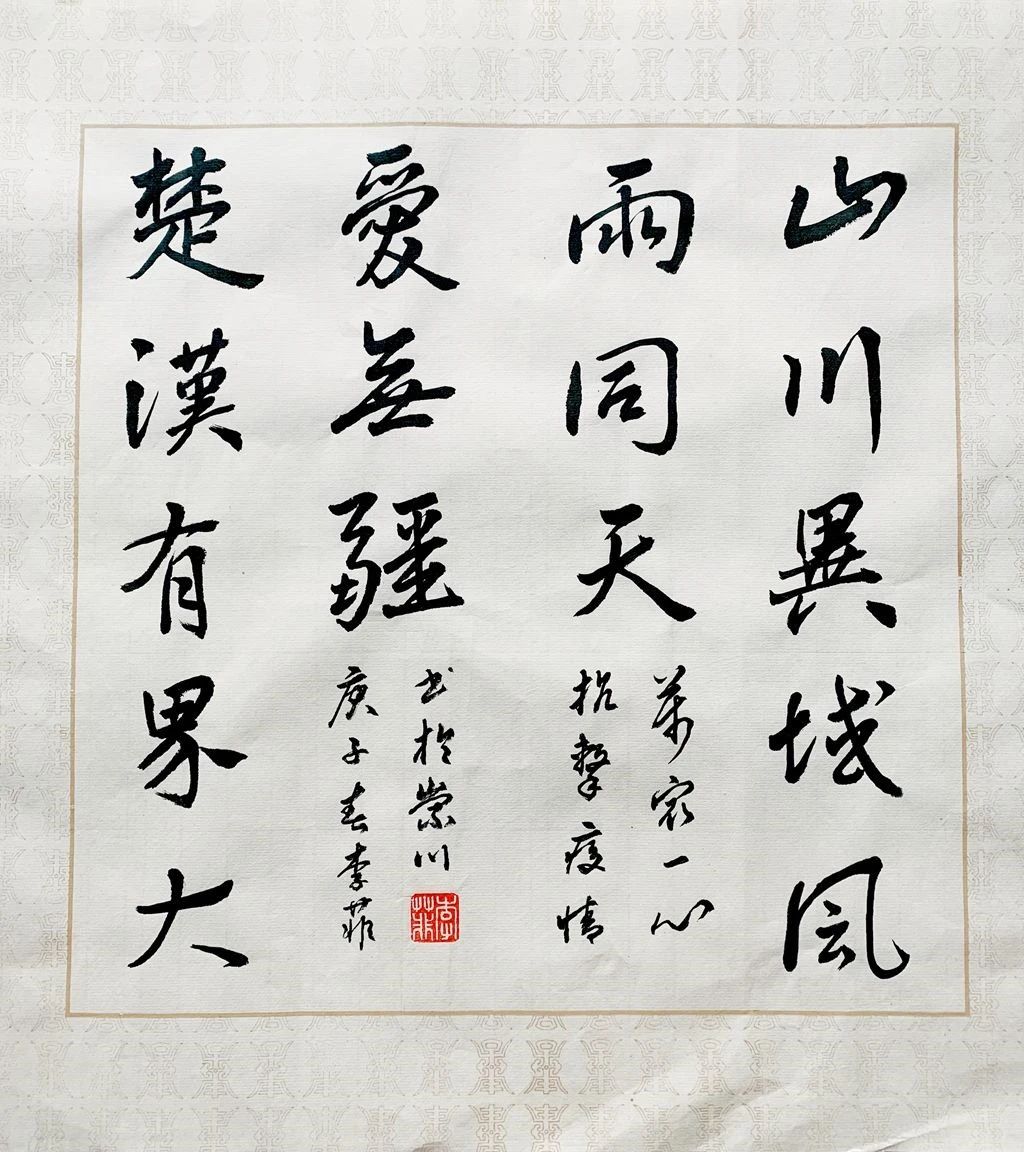 山川異域風
雨同天
萬眾一心
抗擊疫情
楚漢有界大
愛無疆
庚子春李菲
书於崇川
李菲